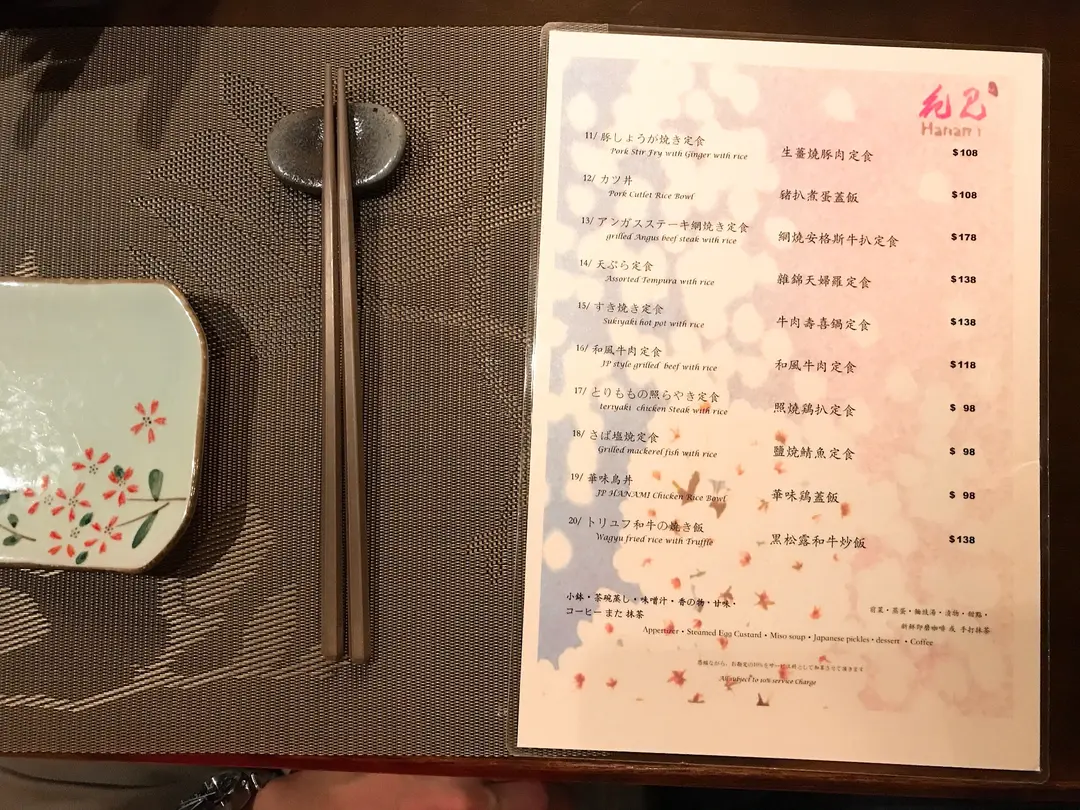 花見
Hanami
11/ 豚しょうが焼き定食 生薑燒豚肉定食 $108
Pork Stir Fry with Ginger with rice
12/ カツ丼 豬扒煮蛋蓋飯 $108
Pork Cutlet Rice Bowl
13/ アンガスステーキ網焼き定食 網燒安格斯牛扒定食 $178
grilled Angus beef steak with rice
14/ 天ぷら定食 雜錦天婦羅定食 $138
Assorted Tempura with rice
15/ すき焼き定食 牛肉壽喜鍋定食 $138
Sukiyaki hot pot with rice
16/ 和風牛肉定食 和風牛肉定食 $118
JP style grilled beef with rice
17/ とりももの照らやき定食 照燒鶏扒定食 $ 98
teriyaki chicken Steak with rice
18/ さば塩焼定食 鹽燒鯖魚定食 $ 98
Grilled mackerel fish with rice
19/ 華味鳥丼 華味鶏蓋飯 $ 98
JP HANAMI Chicken Rice Bowl
20/ トリュフ和牛の焼き飯 黑松露和牛炒飯 $138
Wagyu fried rice with Truffle
小鉢・茶碗蒸し・味噌汁・香の物・甘味・
コーヒー また 抹茶
前菜・蒸蛋・麵豉湯・漬物・甜點・
新鮮即磨咖啡 或 手打抹茶
Appetizer • Steamed Egg Custard • Miso soup • Japanese pickles • dessert • Coffee
All subject to 10% service Charge